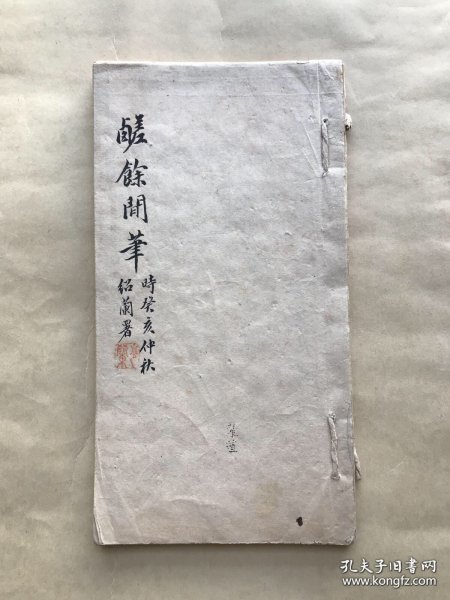 鹺餘閒筆
時癸亥仲秋
紹蘭署
孔夫子旧书网
www.kongfz.com